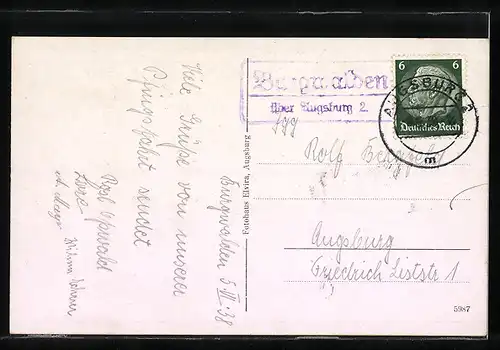 Viele Grüße von unserer
Pfingstfahrt sendet
Lore
Burgwalden 5.VI.38
Fotohaus Elvira, Augsburg
Burgwalden
über Augsburg 2
6 6
Deutsches Reich
AUGSBURG 2
m
Rolf
Augsburg
Friedrich Liststr 1
5987